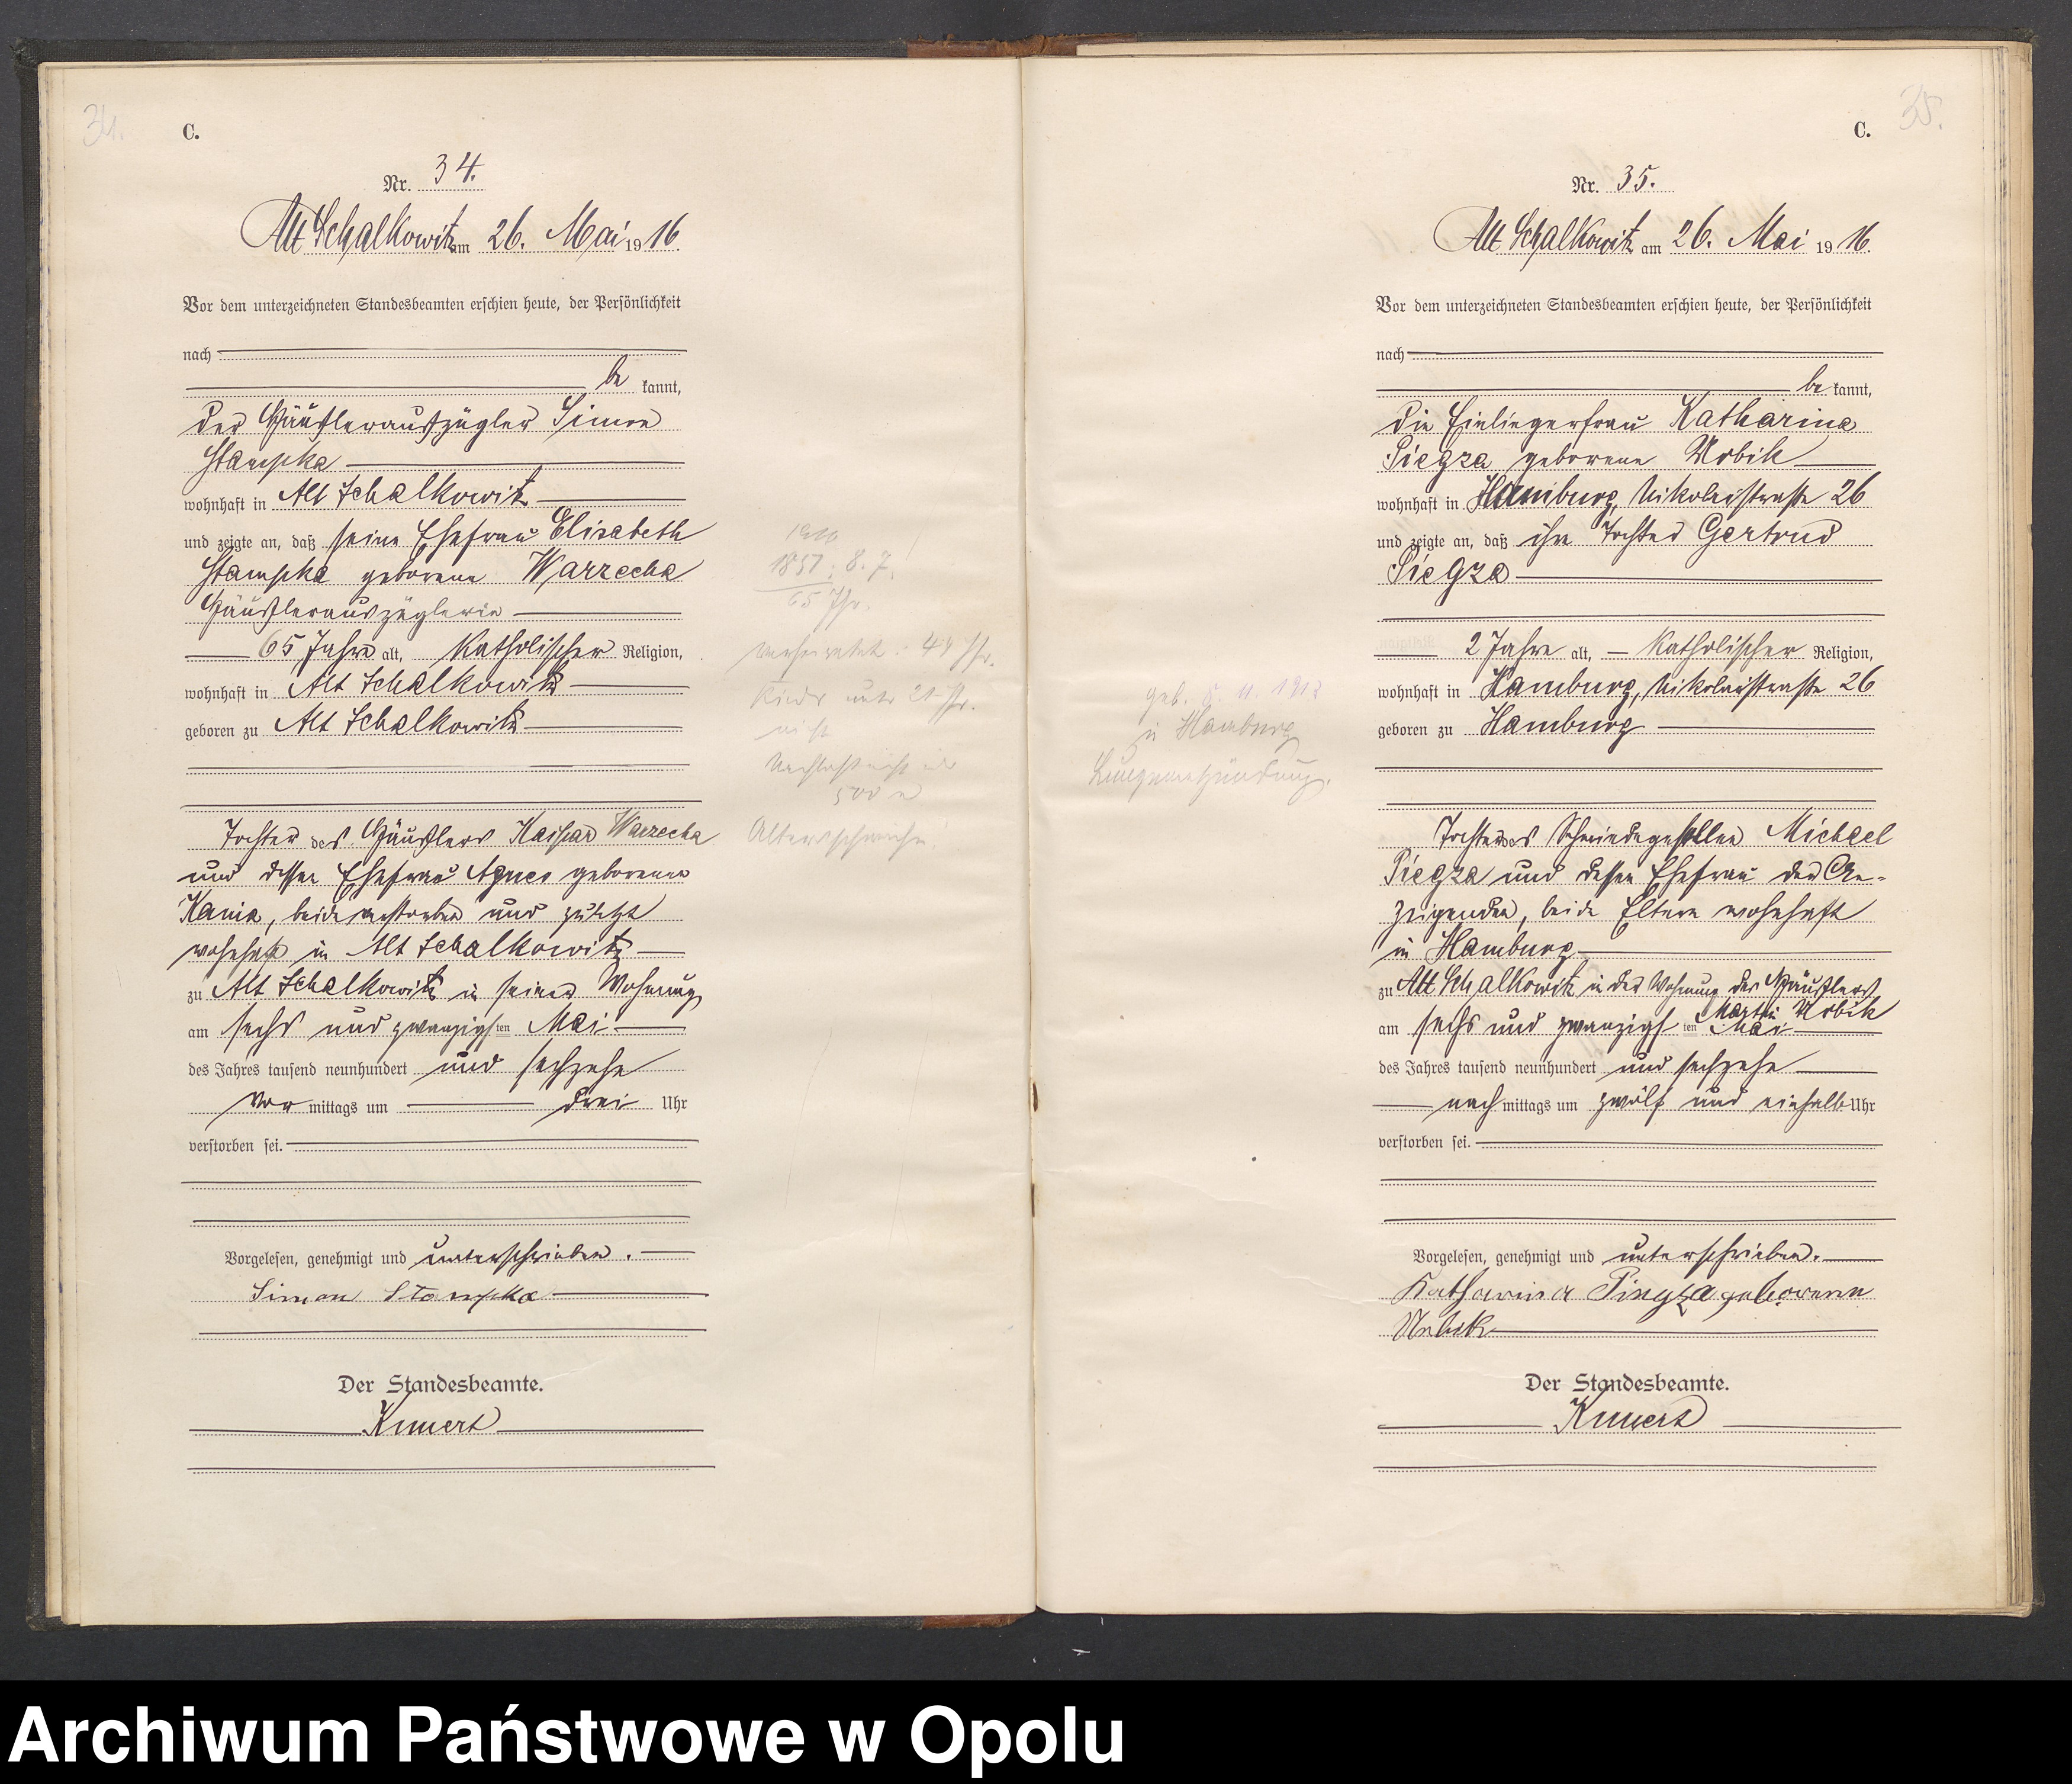 34.
C.
Nr. 34.
Alt Schalkowitz am 26. Mai 1916.
Vor dem unterzeichneten Standesbeamten erschien heute, der Persönlichkeit
nach
be kannt,
der Häusleraußzügler Simon
Stampka
wohnhaft in Alt Schalkowitz
und zeigte an, daß seine Ehefrau Elisabeth
Stampka geborene Warzecha
Häuslerauszüglerin
65 Jahre alt, katholischer Religion,
wohnhaft in Alt Schalkowitz
geboren zu Alt Schalkowitz
Tochter des Häuslers Kaspar Warzecha
und dessen Ehefrau Agnes geborene
Kania, beide verstorben und zuletzt
wohnhaft in Alt Schalkowitz
zu Alt Schalkowitz in seiner Wohnung
am sechs und zwanzigsten Mai
des Jahres tausend neunhundert und sechzehn
Vor mittags um drei Uhr
verstorben sei.
Vorgelesen, genehmigt und unterschrieben.
Simon Stampka
Der Standesbeamte.
Kunert
1916
1851: 8. 7.
65 Jhr.
verheiratet: 44 Jhr.
Kinder unter 21 Jhr.
nicht
500 M
Altersschwäche
35.
C.
Nr. 35.
Alt Schalkowitz am 26. Mai 1916.
Vor dem unterzeichneten Standesbeamten erschien heute, der Persönlichkeit
nach
be kannt,
die Einliegerfrau Katharina
Piegza geborene Wobik
wohnhaft in Hamburg, Nikolaistraße 26
und zeigte an, daß ihre Tochter Gertrud
Piegza
2 Jahre alt, katholischer Religion,
wohnhaft in Hamburg, Nikolaistraße 26
geboren zu Hamburg
Tochter des Schmiedegesellen Michael
Piegza und dessen Ehefrau der An-
zeigenden, beide Eltern wohnhaft
in Hamburg
zu Alt Schalkowitz in der Wohnung des Häuslers
Martin Wobik
am sechs und zwanzigsten Mai
des Jahres tausend neunhundert und sechzehn
nach mittags um zwölf und einhalb Uhr
verstorben sei.
Vorgelesen, genehmigt und unterschrieben.
Katharina Piegza geborene
Wobik
Der Standesbeamte.
Kunert
geb. 5. 11. 1913
in Hamburg
Lungenentzündung.
Archiwum Państwowe w Opolu